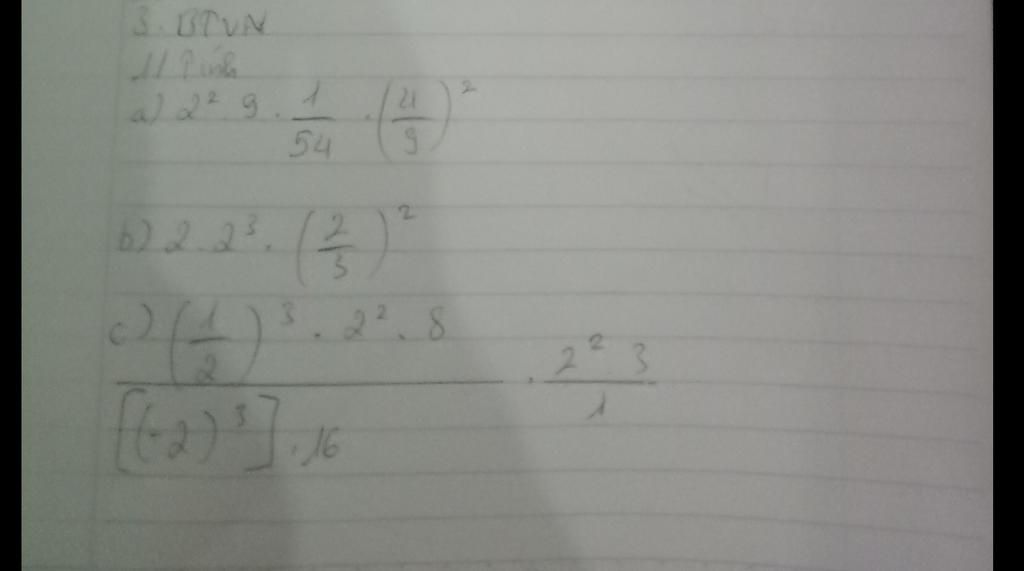 3. BTVN
1/ Tính
a) 2² . 9 . 1/54 . (4/9)²
b) 2 . 2³ . (2/3)²
c) (1/2)³ . 2² . 8 / [(-2)³] . 16 . 2² . 3 / 1